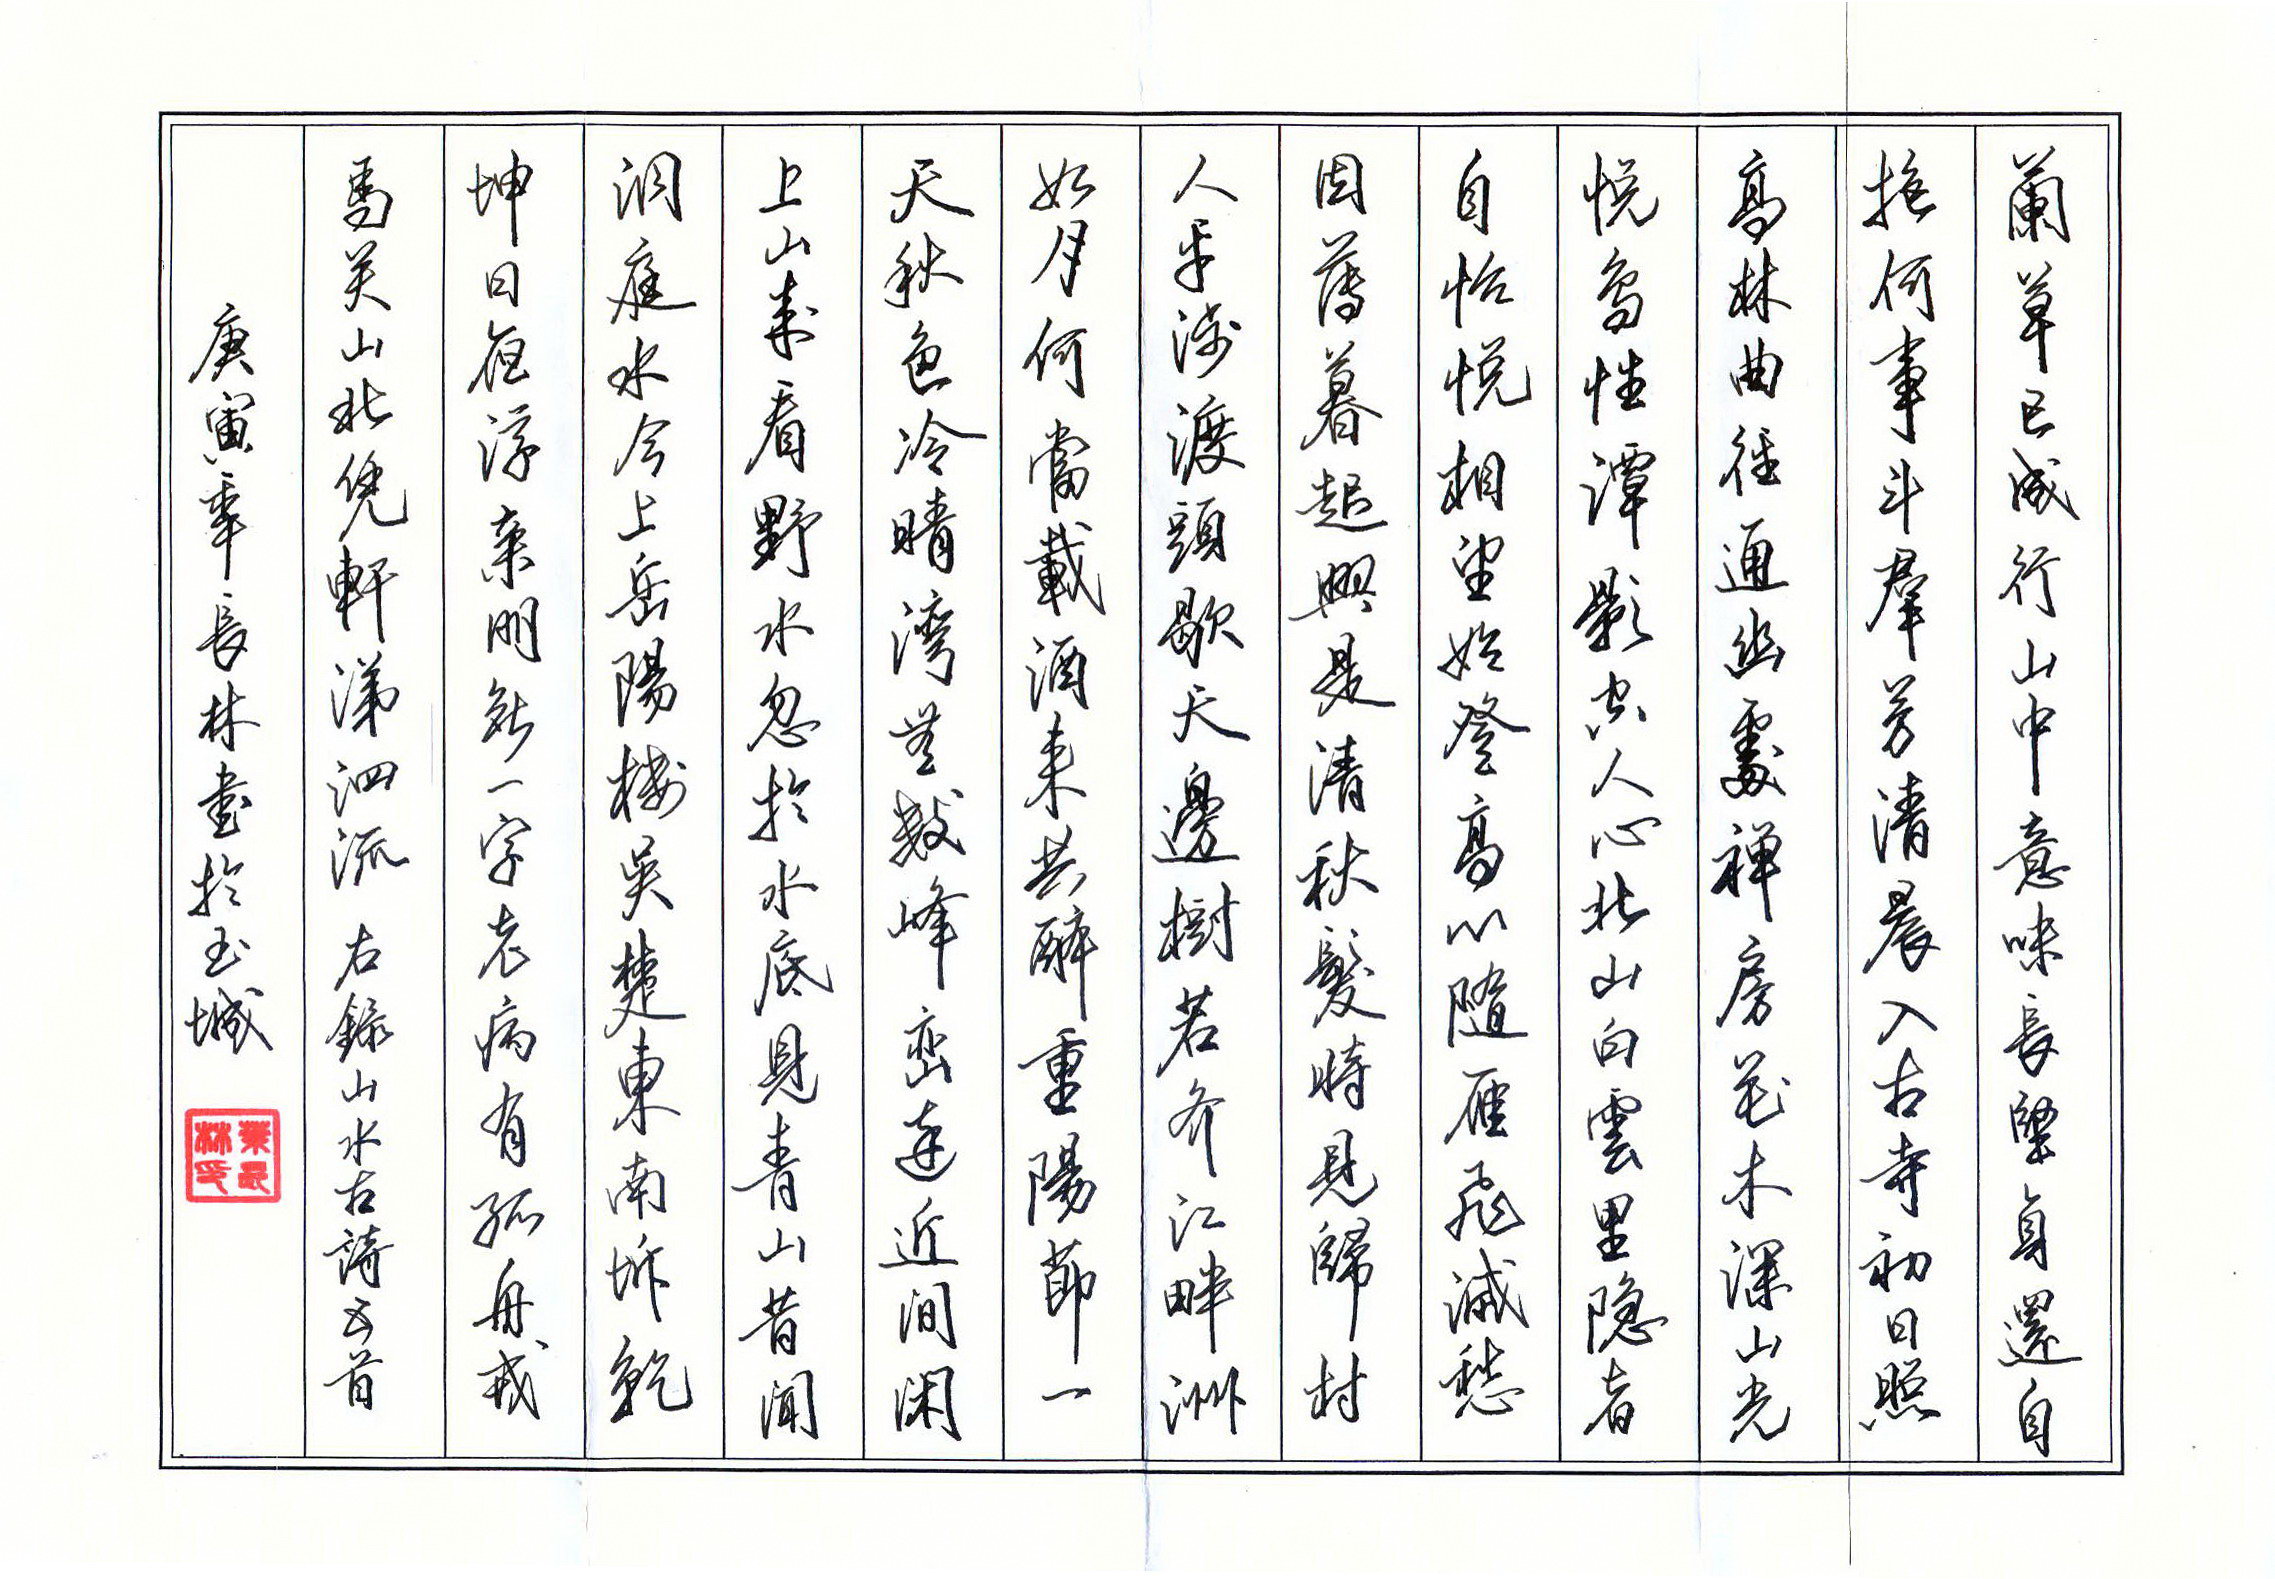 蘭草已成行山中意味長堅貞還自
抱何事斗羣芳清晨入古寺初日照
高林曲徑通幽處禅房花木深山光
悦鳥性潭影空人心北山白雲里隐者
自怡悦相望始登高心隨雁飛滅愁
因薄暮起興是清秋發時見歸村
人平沙渡頭歇天邊樹若齐江畔洲
如月何當載酒来共醉重陽節一
天秋色冷晴湾無數峰巒遠近間闲
上山来看野水忽於水底見青山昔聞
洞庭水今上岳陽楼吴楚東南坼乾
坤日夜浮親朋無一字老病有孤舟戎
馬关山北凭軒涕泗流 右錄山水古詩五首
庚寅年長林書於玉城
葉長林印